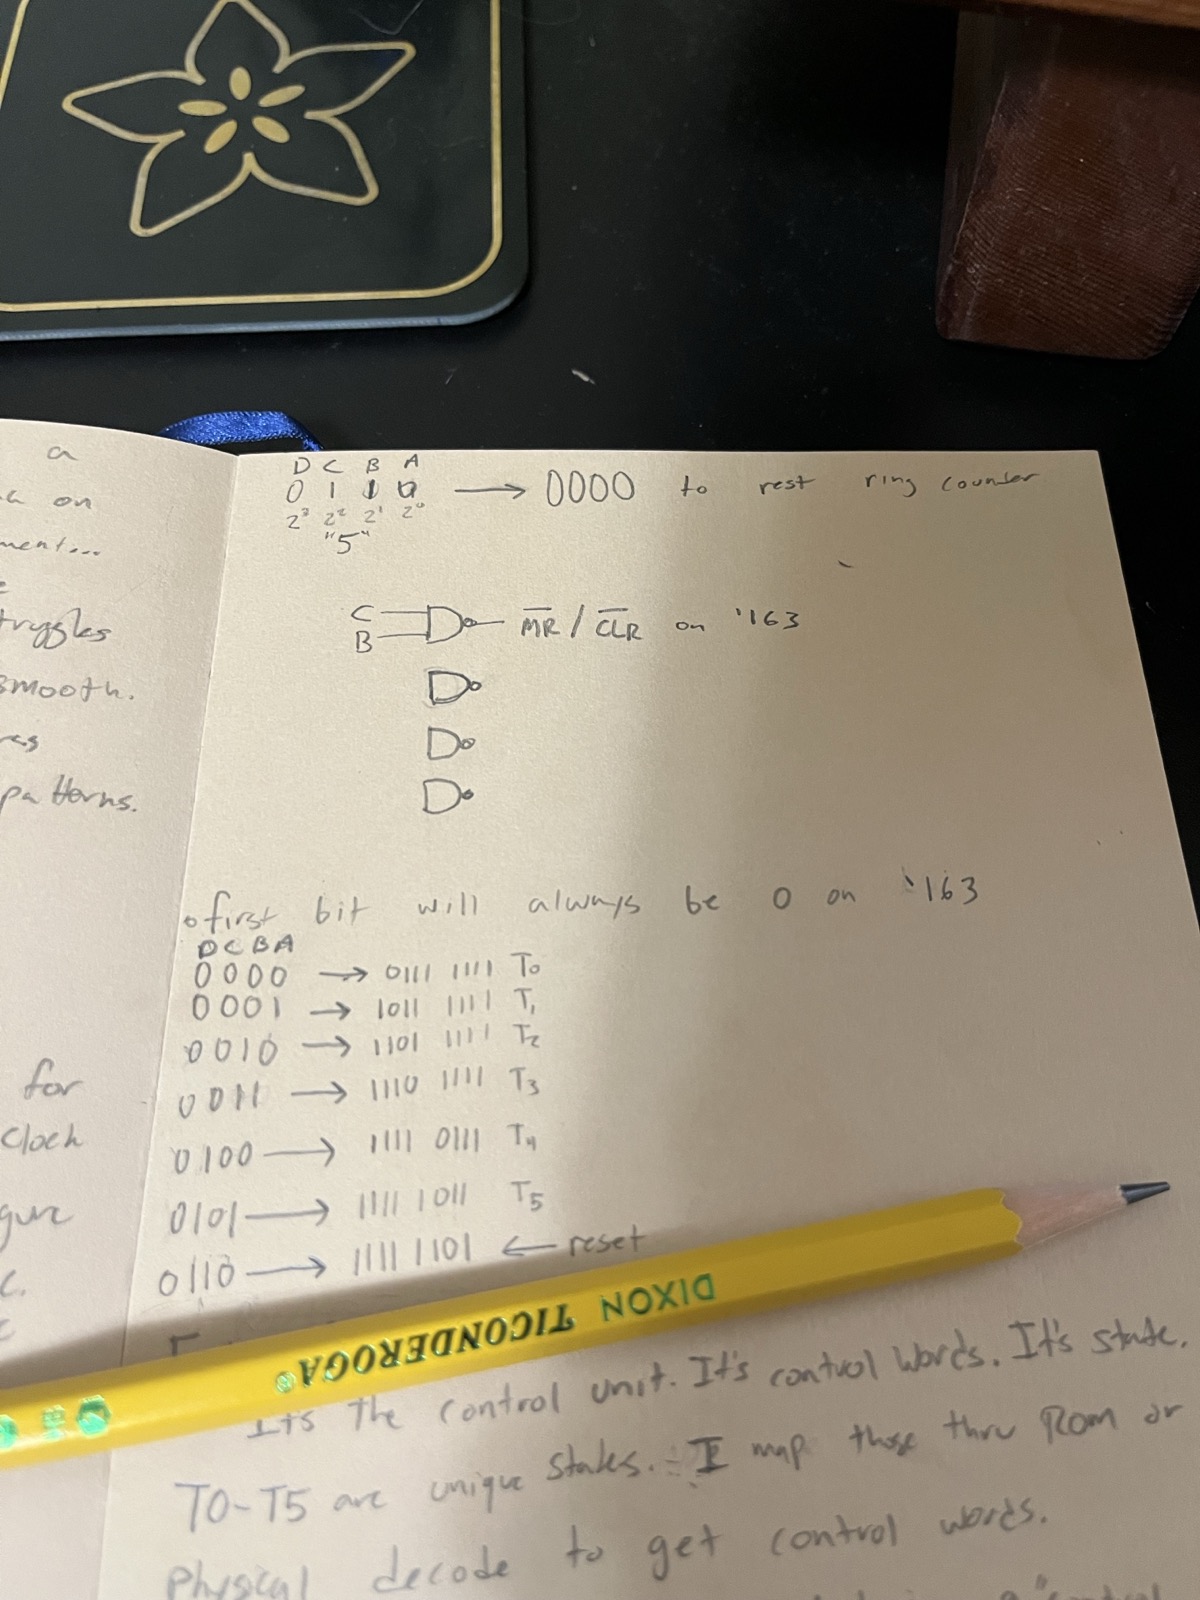 a
on
ment...
truggles
smooth.
patterns.
for
Clock
gure
c.
D C B A
0 1 1 0 → 0000 to rest ring counter
2³ 2² 2¹ 2⁰
"5"
C
B
M̅R̅ / C̅L̅R̅ on '163
first bit will always be 0 on '163
D C B A
0000 → 0111 1111 T₀
0001 → 1011 1111 T₁
0010 → 1101 1111 T₂
0011 → 1110 1111 T₃
0100 → 1111 0111 T₄
0101 → 1111 1011 T₅
0110 → 1111 1101 ← reset
DIXON TICONDEROGA®
It's the control unit. It's control words. It's state.
T0-T5 are unique states. I map those thru ROM or
physical decode to get control words.